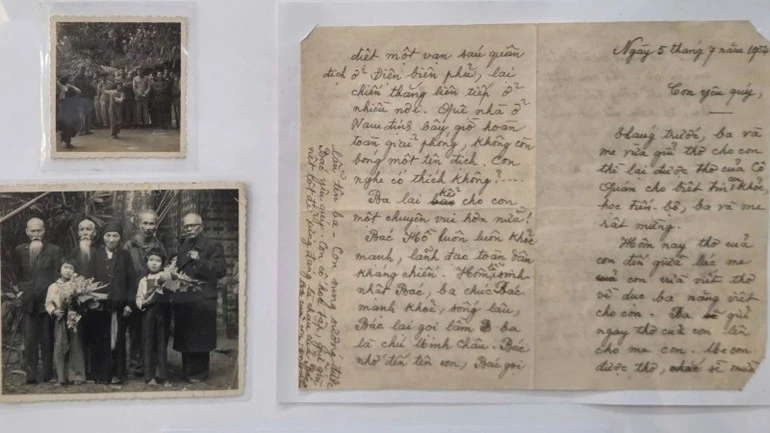 Ngày 5 tháng 7 năm
Con yêu quý,
Tháng trước, ba và
mẹ vừa gửi thơ cho con
thì lại được thơ của Cô
Quán cho biết tin khỏe,
học tiến-bộ, ba và mẹ
rất mừng.
Hôm nay thơ của
con đến giữa lúc mẹ
con vừa viết thơ
về dục ba năng viết
cho con. Ba gửi
ngay thơ của con lên
cho mẹ con. Mẹ con
được thơ, sẽ mừn
diêt một vạn sáu quân
địch ở Điện biên phủ, lại
chiến thắng liên tiếp ở
nhiều nơi. Quê nhà ở
Nam định bây giờ hoàn
toàn giải phóng, không còn
bóng một tên địch. Con
nghe có thích không?....
Ba lại kể cho con
một chuyện vui hơn nữa!
Bác Hồ luôn luôn khỏe
mạnh, lãnh đạo toàn dân
kháng chiến. Hôm sinh
nhật Bác, ba chúc Bác
mạnh khoẻ, sống lâu,
Bác lại gọi lầm ba
là chú Minh Châu. Bác
nhớ đến tên con, Bác gọi
lầm tên ba - Con sung sướng được
Bác yêu quý, con cố học tập, giữ gìn
nết tốt để xứng đáng là cháu